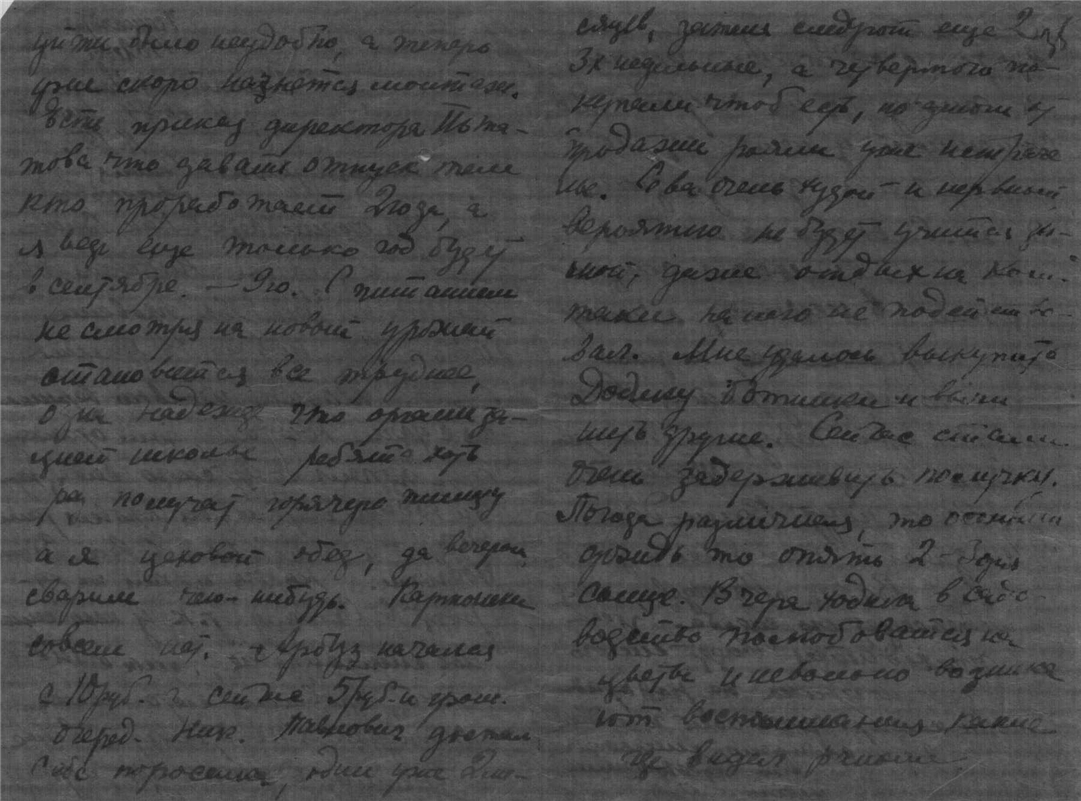 уйти было неудобно, а теперь
уже скоро начнется монтаж.
Есть приказ директора
что давать отпуск тем
кто проработает 2 года, а
я ведь еще только год будет
в сентябре. — 9го. С питанием
несмотря на новый урожай
становится все труднее,
одна надежда что организа-
цией школы ребята хоть
раз получат горячую пищу
а я цеховой обед, да вечером
сварим чего-нибудь. Картошки
совсем нет. Арбуз начался
с 10 руб. а сейчас 5 руб. и гром.
очеред. Ник. Павлович достал
себе поросенка, один уже 2 ме-
сяцев, затем следуют еще 2
3х недельные, а четвертого по-
купали чтоб есть, но
продажи рояли уже
Вова очень худой и нервный
Вероятно не будет учится
даже отдых на
таки на него не подейство-
вал. Мне удалось выкупить
ботинки и
другие. Сейчас стали
очень задерживать получку.
Погода различная, то
дождь то опять 2-3 дня
солнце. Вчера ходила в садо-
водство полюбоваться на
цветы и невольно возника-
ют воспоминания какие
видел раньше.